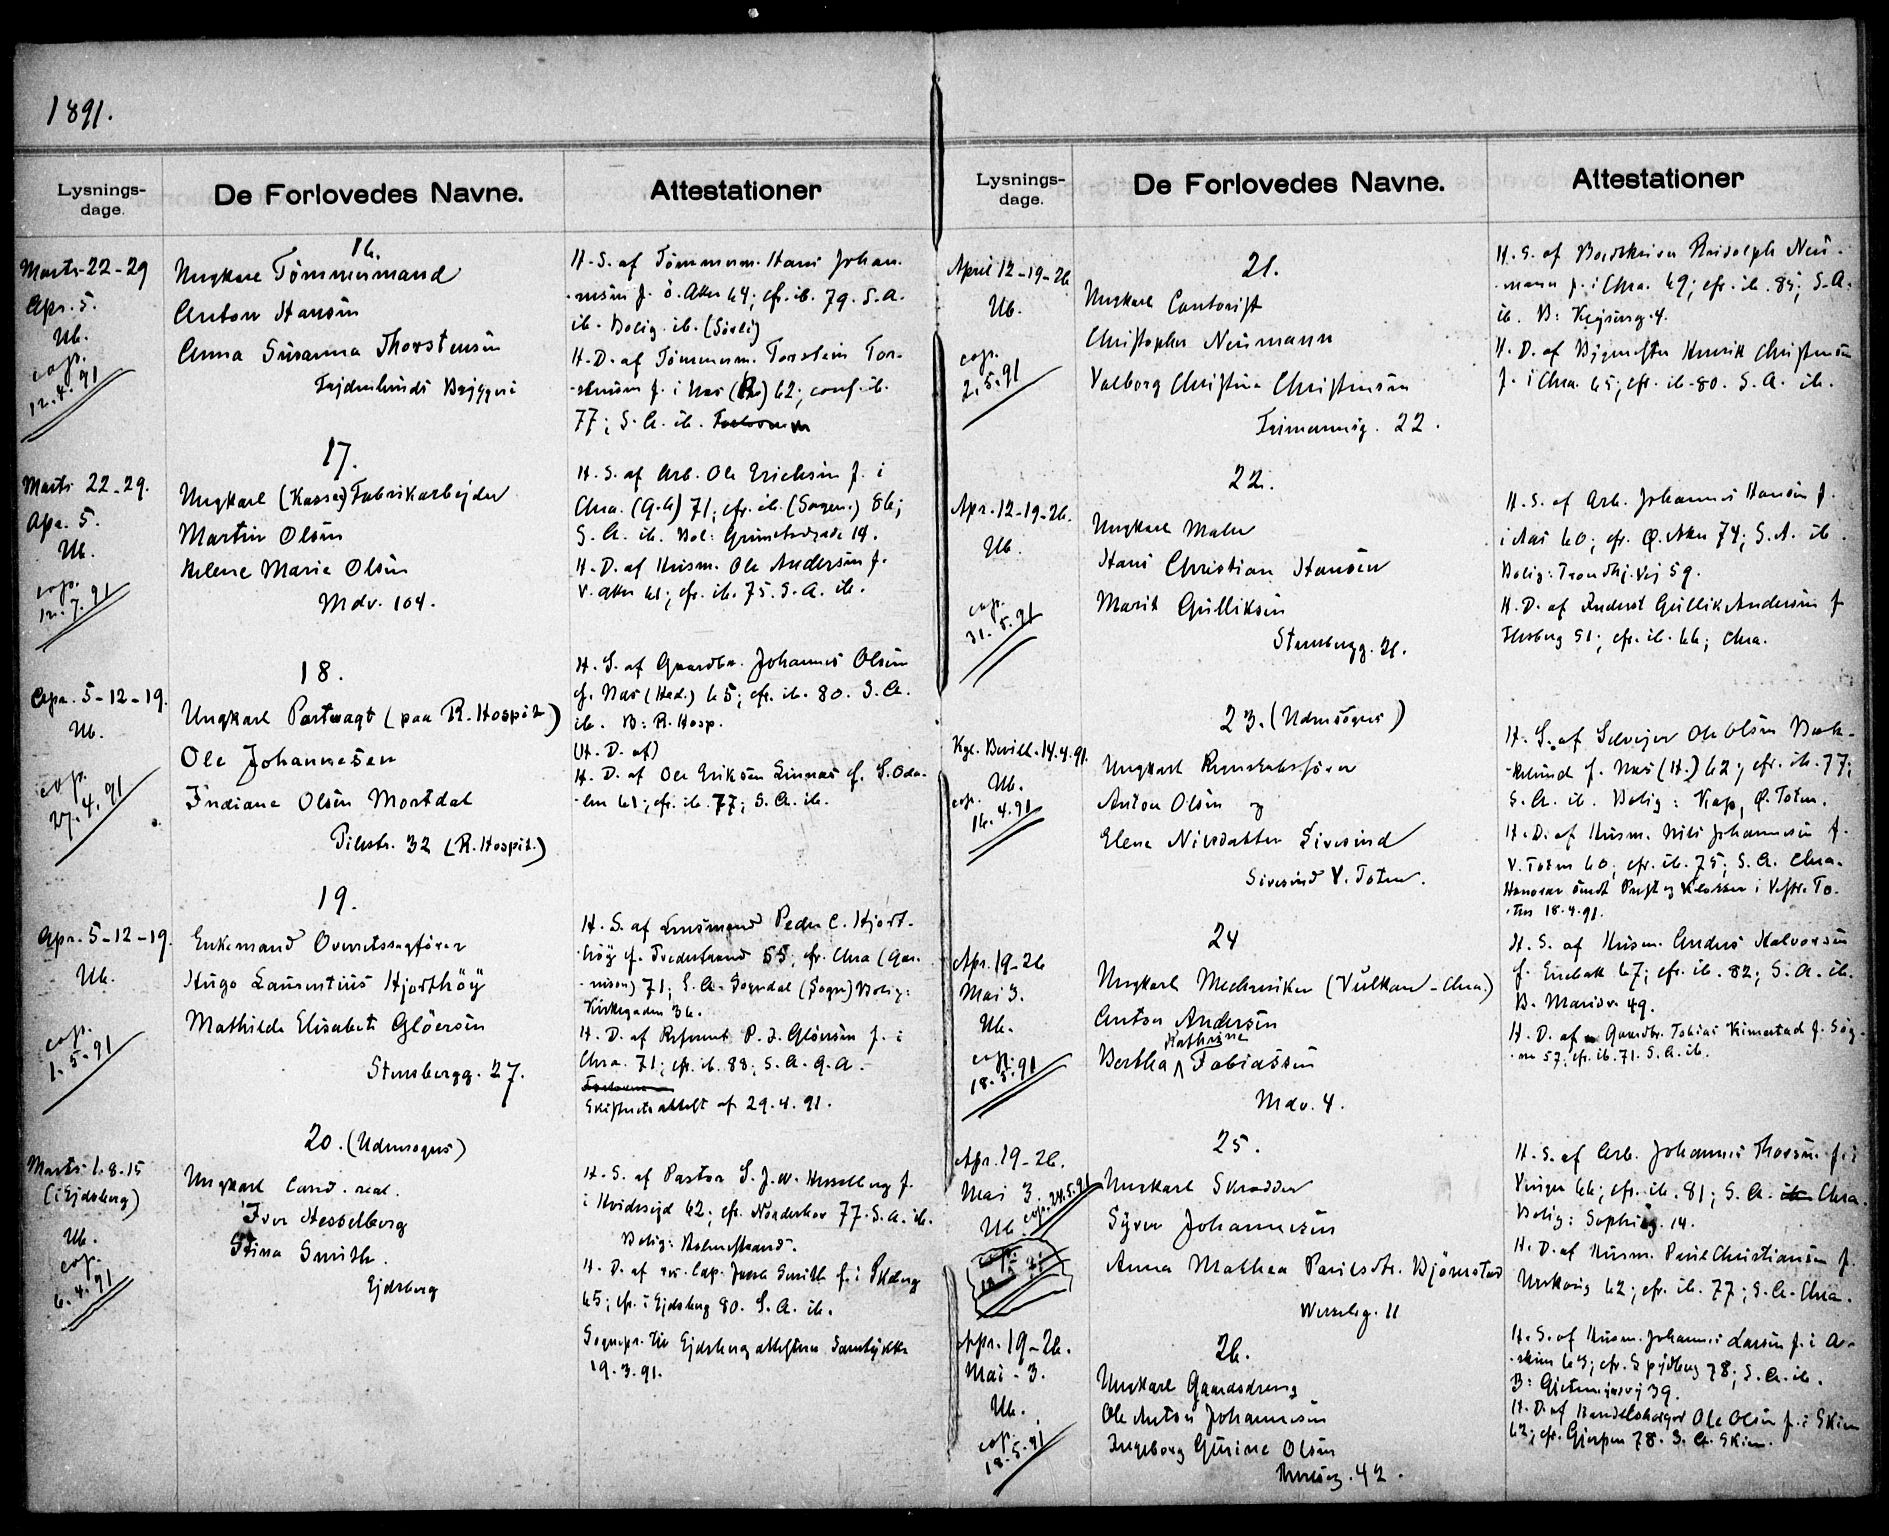 1891.
Lysnings-
dage.
De Forlovedes Navne.
Attestationer
16.
Marts 22-29
Apr. 5.
Ub.
cop.
12.4.91
Ungkarl Tömmermand
Anton Hansen
Anna Susanna Thorstensen
Bryggeri
H. S. af Tömmerm. Hans Johan-
-nesen f. Ö. Aker 64; cfr. ib. 79. S. A.
ib. Bolig. ib. (Sörli)
H. D. af Tömmerm. Torstein Tor-
-stensen f. i Næs (R) 62; conf. ib.
77; S. A. ib.
17.
Marts 22-29.
Apr. 5.
Ub.
cop.
12.7.91
Ungkarl (Kasser) Fabrikarbejder
Martin Olsen
Helene Marie Olsen
Mdv. 104.
H. S. af Arb. Ole Ericksen f. i
Chra. (G.A) 71; cfr. ib. (Sagen.) 86;
S. A. ib. Bol: Grünersgade 19.
H. D. af Husm. Ole Andersen f.
V. Aker 61; cfr. ib. 75. S. A. ib.
18.
Apr. 5-12-19.
Ub.
cop.
27.4.91
Ungkarl Portvagt (paa R. Hospit.)
Ole Johannesen
Indiana Olsen Mortdal
Pilestr. 32 (R. Hospit.)
H. S. af Gaardbr. Johannes Olsen
f. Næs (Hed.) 65; cfr. ib. 80. S. A.
ib. B: R. Hosp.
(H. D. af)
H. D. af Ole Eriksen Linnæs f. S. Oda-
-len 61; cfr. ib. 77; S. A. ib.
19.
Apr. 5-12-19.
Ub.
cop.
1.5.91
Enkemand Overretssagförer
Hugo Laurentius Hjorthöy
Mathilde Elisabeth Glöersen
Stensbergg. 27.
H. S. af Lensmand Peder C. Hjort-
-höy f. Frederikstad 55; cfr. Chra (Gar-
-nison) 71; S. A. Sogndal (Sogn) Bolig:
Kirkegaden 36.
H. D. af Referent P. J. Glöersen f. i
Chra. 71; cfr. ib. 88; S. A. G. A.
Skifteretsattest af 29.4.91.
20. (Udensogns)
Marts 1.8.15
(i Ejdsberg)
Ub.
cop.
6.4.91
Ungkarl Cand. real.
Iver Hesselberg
Stina Smith.
Ejdsberg
H. S. af Pastor S. J. W. Hesselberg f.
i Hvideseid 62; cfr. Norderhov 77. S. A. ib.
Bolig: Holmestrand.
H. D. af res. Cap. Jacob Smith f. i
65; cfr. i Ejdsberg 80. S. A. ib.
Sognepr. til Ejdsberg attesteret Samtykke
19.3.91.
Lysnings-
dage.
De Forlovedes Navne.
Attestationer
21.
April 12-19-26
Ub.
cop.
2.5.91
Ungkarl Contorist
Christopher Neumann
Valborg Christine Christensen
Frimannsg. 22.
H. S. af Rudolph Neu-
-mann f. i Chra. 69; cfr. ib. 85; S. A.
ib. B: Keyserg. 4.
H. D. af Bygmester Henrik Christensen
f. i Chra. 65; cfr. ib. 80. S. A. ib.
22.
Apr. 12-19-26.
Ub.
cop.
31.5.91
Ungkarl Maler
Hans Christian Hansen
Marit Gulliksen
Stensbergg. 21.
H. S. af Arb. Johannes Hansen f.
i Aas 60; cfr. Ø. Aker 74; S. A. ib.
Bolig: Trondhj. Vej 59.
H. D. af Inderst Gullik Andersen f.
Flesberg 51; cfr. ib. 66; Chra.
23. (Udensogns)
Kgl. Bevill. 14.4.91.
Ub.
cop.
16.4.91
Ungkarl Regnskabsförer
Anton Olsen og
Elene Nilsdatter Sivesind
Sivesind V. Toten.
H. S. af Selvejer Ole Olsen Bæk-
-kelund f. Næs (H.) 62; cfr. ib. 77;
S. A. ib. Bolig: Kap, Ø. Toten.
H. D. af Husm. Nils Johannesen f.
V. Toten 60; cfr. ib. 75; S. A. Chra.
Honorar sendt Prest og Klokker i Vestre To-
-ten 18.4.91.
24
Apr. 19-26
Mai 3.
Ub.
cop.
18.5.91
Ungkarl Mechaniker (Vulkan - Chra.)
Anton Andersen
Kathrine
Bertha ^ Tobiassen
Mdv. 4.
H. S. af Husm. Anders Halvorsen
f. Enebak 67; cfr. ib. 82; S. A. ib.
B. Maridv. 49.
H. D. af Gaardbr. Tobias Kimestad f. Sög-
-ne 57; cfr. ib. 71. S. A. ib.
25.
Apr. 19-26.
Mai 3.
Ub.
cop. 24.5.91
Ungkarl Skrædder
Syver Johannesen
Anna Mathea Paulsdtr. Björnstad
Wesselsg. 11
H. S. af Arb. Johannes Thorsen f. i
Vinger 66; cfr. ib. 81; S. A. Chra.
Bolig: Sophiesg. 14.
H. D. af Husm. Paul Christiansen f.
Urskoug 62; cfr. ib. 77; S. A. Chra.
26.
Apr. 19-26.
Mai - 3.
Ub.
cop.
18.5.91
Ungkarl Gaardsdreng
Ole Anton Johannesen
Ingeborg Gurine Olsen
42.
H. S. af Husm. Johannes Larsen f. i A-
-skim 63; cfr. Spydberg 78; S. A. ib.
B: Gjetemyrsvej 39.
H. D. af Ole Olsen f. i Skien
62; cfr. Gjerpen 78. S. A. Skien.